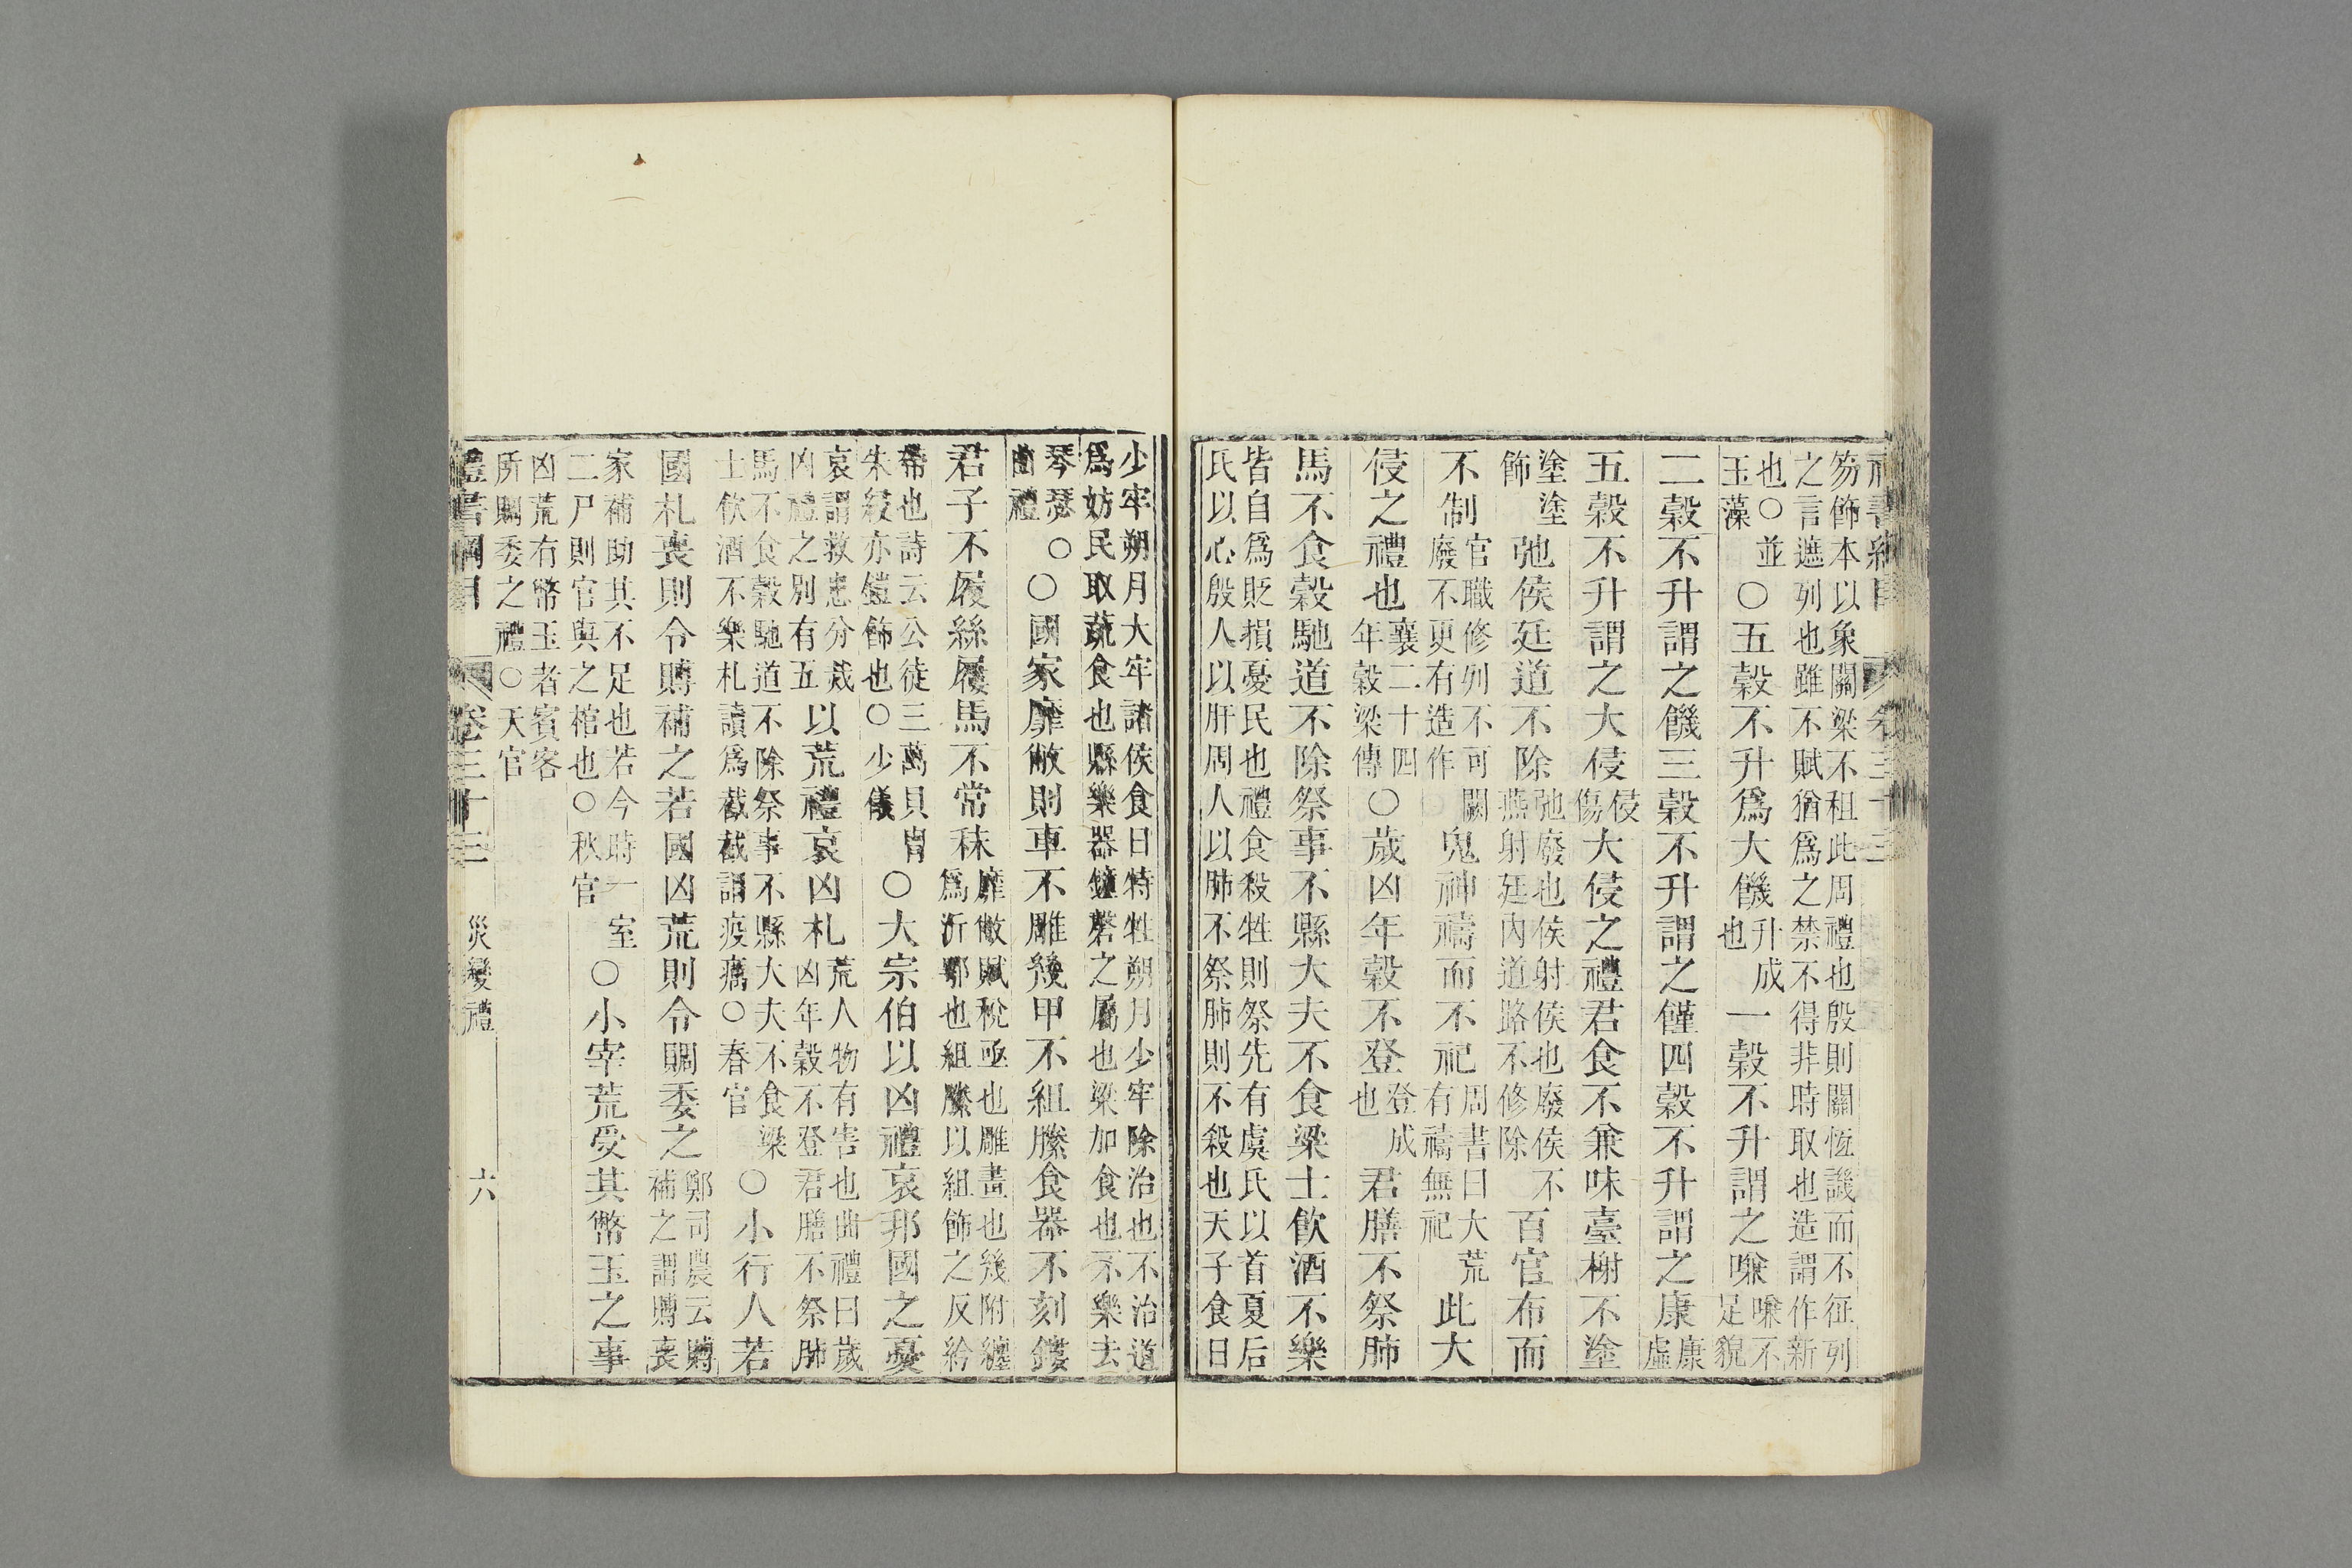 笏飾本以象關梁不租此周禮也殷則關恆譏而不征列
之言遮列也雖不賦猶爲之禁不得非時取也造謂作新
也○並玉藻○五穀不升爲大饑升成也一穀不升謂之嗛嗛不足貌
二穀不升謂之饑三穀不升謂之饉四穀不升謂之康康虛
五穀不升謂之大侵侵傷大侵之禮君食不兼味臺榭不塗
塗塗飾弛侯廷道不除弛廢也侯射侯也廢侯不燕射廷內道路不修除百官布而
不制官職修列不可闕廢不更有造作鬼神禱而不祀周書曰大荒有禱無祀此大
侵之禮也襄二十四年穀梁傳○歲凶年穀不登登成也君膳不祭肺
馬不食穀馳道不除祭事不縣大夫不食粱士飲酒不樂
皆自爲貶損憂民也禮食殺牲則祭先有虞氏以首夏后
氏以心殷人以肝周人以肺不祭肺則不殺也天子食日
少牢朔月大牢諸侯食日特牲朔月少牢除治也不治道
爲妨民取蔬食也縣樂器鐘磬之屬也粱加食也不樂去
琴瑟○曲禮○國家靡敝則車不雕幾甲不組縢食器不刻鏤
君子不履絲屨馬不常秣靡敝賦稅亟也雕畫也幾附纏爲沂鄂也組縢以組飾之及紟
帶也詩云公徒三萬貝冑朱綅亦鎧飾也○少儀○大宗伯以凶禮哀邦國之憂
哀謂救患分烖凶禮之別有五以荒禮哀凶札荒人物有害也曲禮曰歲凶年穀不登君膳不祭肺
馬不食穀馳道不除祭事不縣大夫不食粱士飲酒不樂札讀爲截截謂疫癘○春官○小行人若
國札喪則令賻補之若國凶荒則令賙委之鄭司農云賻補之謂賻喪
家補助其不足也若今時一室二尸則官與之棺也○秋官○小宰荒受其幣玉之事
凶荒有幣玉者賓客所賙委之禮○天官
禮書綱目 卷三十三 災變禮 六